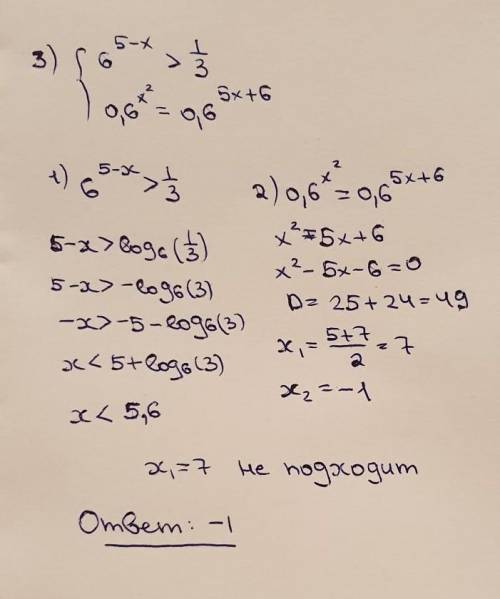 3) { 6^(5-x) > 1/3
0,6^(x^2) = 0,6^(5x+6)
1) 6^(5-x) > 1/3
5-x > log₆(1/3)
5-x > -log₆(3)
-x > -5 - log₆(3)
x < 5 + log₆(3)
x < 5,6
2) 0,6^(x^2) = 0,6^(5x+6)
x² = 5x + 6
x² - 5x - 6 = 0
D = 25 + 24 = 49
x₁ = (5+7)/2 = 7
x₂ = -1
x₁ = 7 не подходит
Ответ: -1